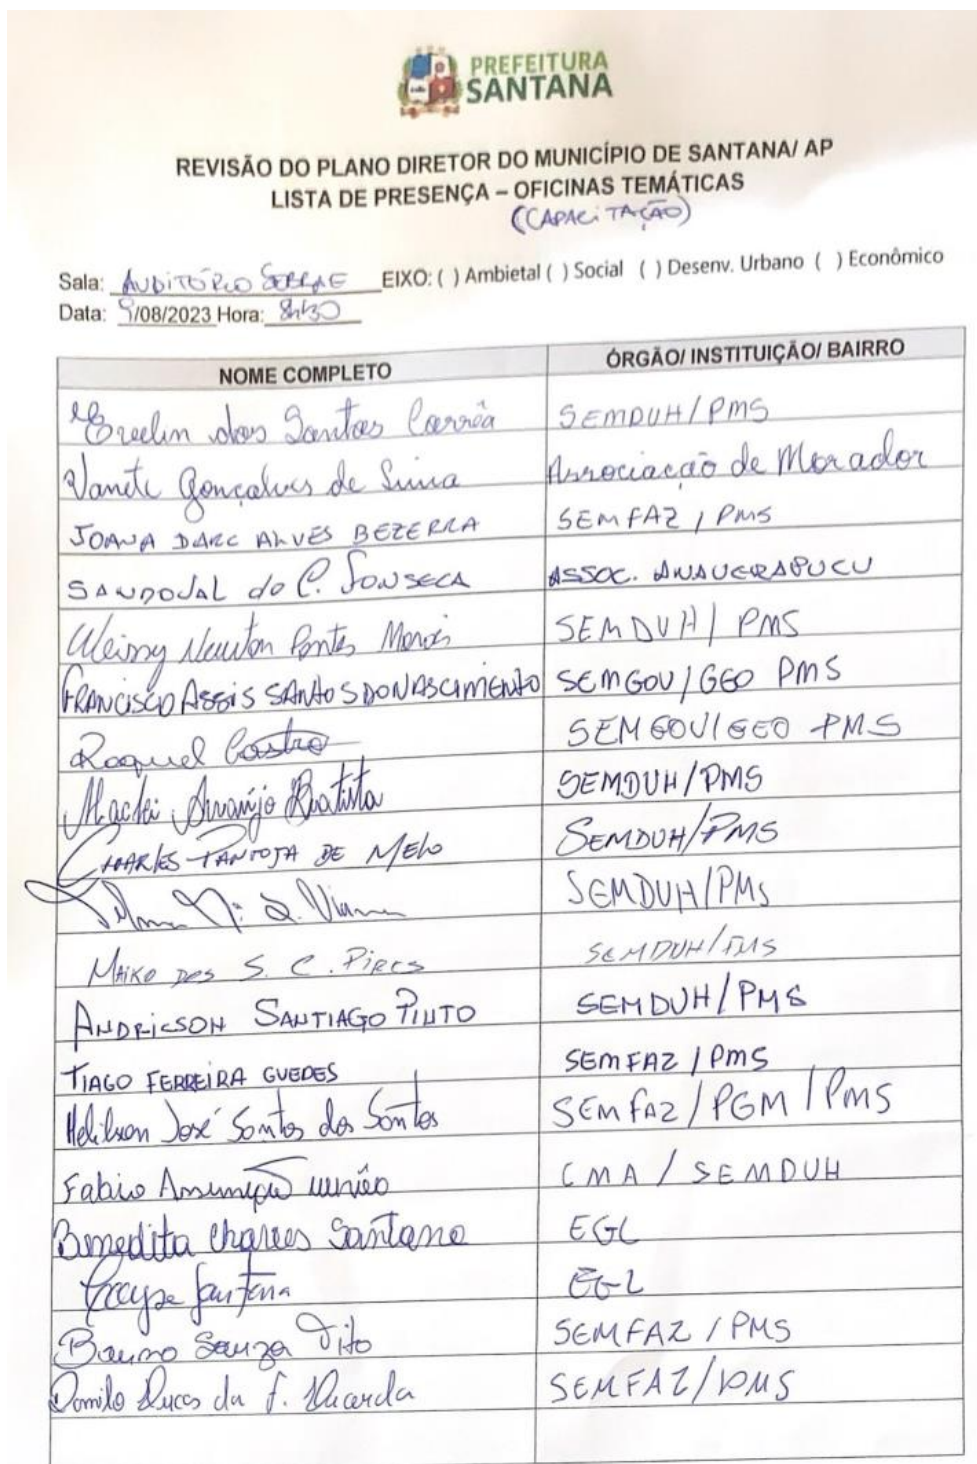 PREFEITURA
SANTANA
REVISÃO DO PLANO DIRETOR DO MUNICÍPIO DE SANTANA/ AP
LISTA DE PRESENÇA – OFICINAS TEMÁTICAS
(CAPACITAÇÃO)
Sala: AUDITÓRIO SEBRAE EIXO: ( ) Ambietal ( ) Social ( ) Desenv. Urbano ( ) Econômico
Data: 9/08/2023 Hora: 8h30
NOME COMPLETO ÓRGÃO/ INSTITUIÇÃO/ BAIRRO
dos Santos Corrêa SEMDUH/PMS
Gonçalves de Associacão de Morador
JOANA DARC ALVES BEZERRA SEMFAZ / PMS
SANDOVAL do C. FONSECA ASSOC. ANAUERAPUCU
Newton Pontes SEMDUH / PMS
FRANCISCO ASSIS SANTOS DO NASCIMENTO SEMGOV/GEO PMS
Raquel Castro SEMGOV/GEO PMS
Araújo Batista SEMDUH/PMS
CHARLES PANTOJA DE MELO SEMDUH/PMS
SEMDUH/PMS
MAIKO DOS S. C. PIRES SEMDUH/PMS
ANDRICSON SANTIAGO PINTO SEMDUH/PMS
TIAGO FERREIRA GUEDES SEMFAZ / PMS
José Santos dos Santos SEMFAZ / PGM / PMS
Fabio CMA / SEMDUH
Benedita Santana EGL
Santana EGL
Souza SEMFAZ / PMS
da SEMFAZ/PMS